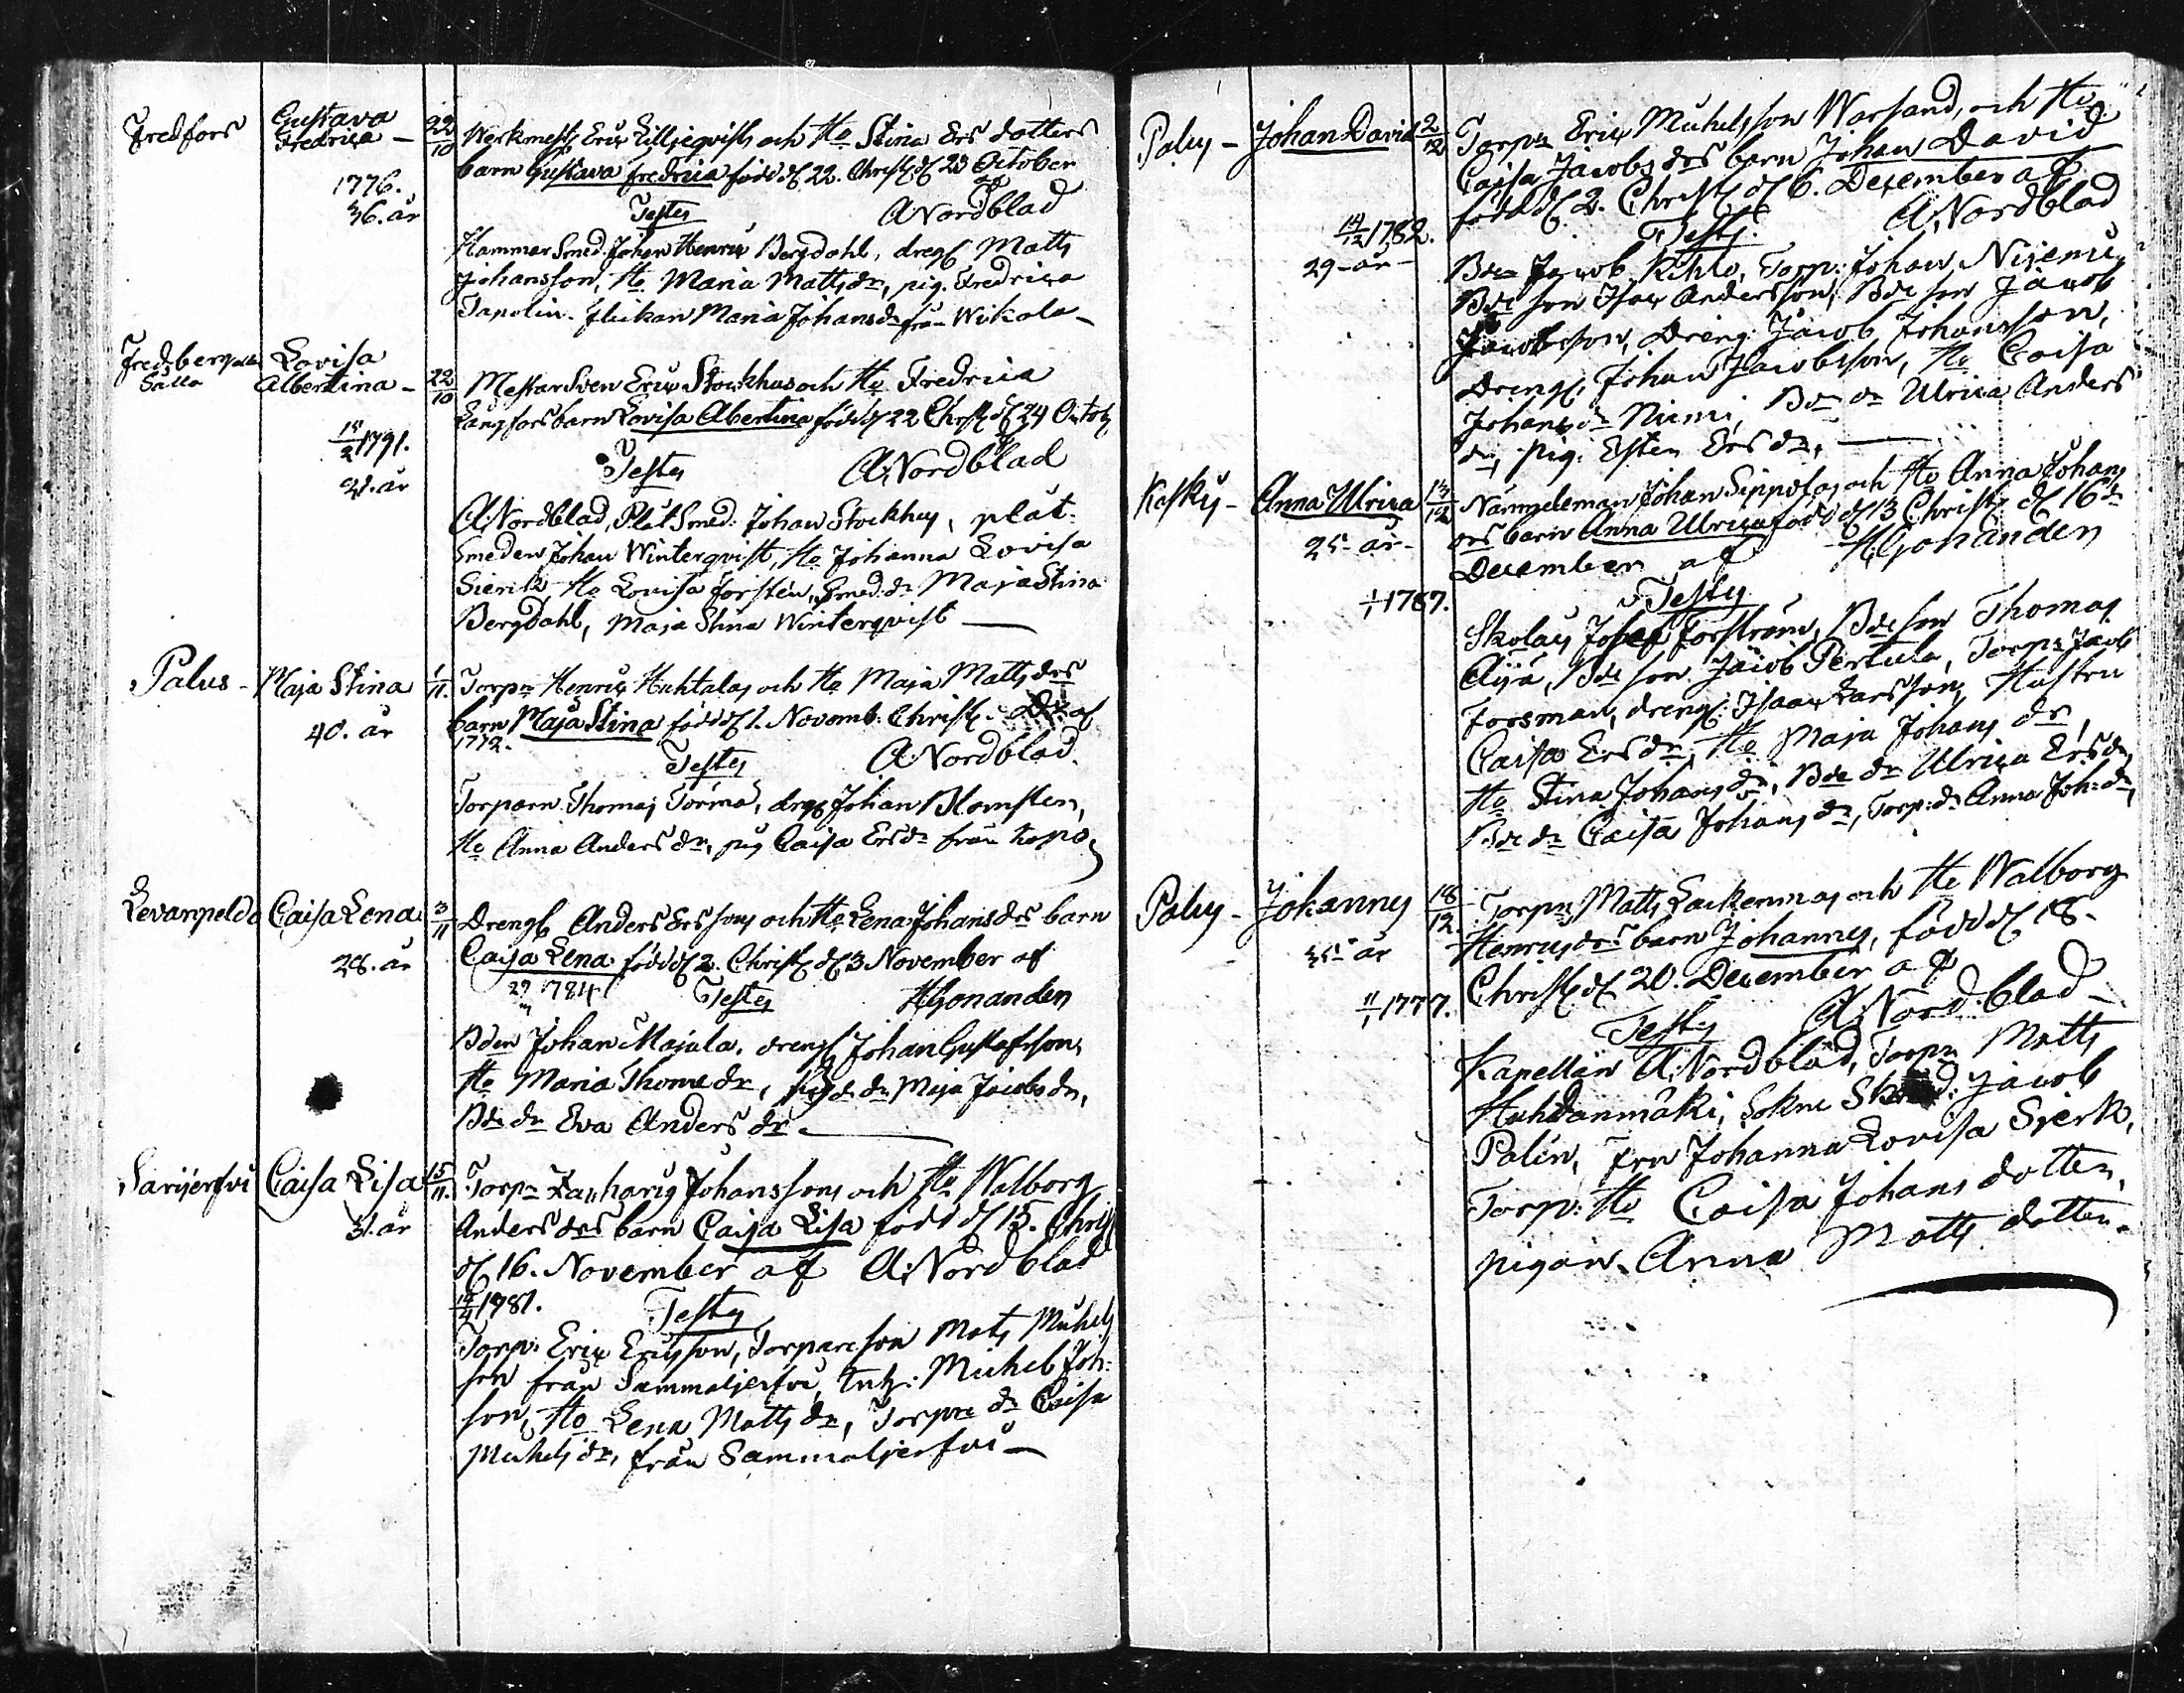 Fredfors
Gustava
Fredrica –
22/10
1776.
36. år
Werkmest: Eric Lilljeqvist och Ho Stina Ers dotters
barn Gustava Fredrica född d: 22. Christ: d: 23 October
af
Testes ANordblad
HammarSmed: Johan Henric Bergdahl, dreng: Matts
Johansson, Ho Maria Matts dr, pig. Fredrica
Tapolin. flickan Maria Johans dr från Wikala –
Fredsberg
Lovisa
Albertina –
22/10
1791.
21. år
MestarSven Eric Stockhus och Ho Fredrica
Långfors barn Lovisa Albertina född d: 22 Christ: d: 24 Octob:
af
Testes A:Nordblad
A:Nordblad, PlåtSmed: Johan Stockhus, plåt-
Smeden Johan Winterqvist, Ho Johanna Lovisa
Sierck, Ho Lovisa Forstén, Smed: dr Maja Stina
Bergdahl, Maja Stina Winterqvist –
Palus –
Maja Stina
1/11.
40. år
Torpn Henric Huhtalas och Ho Maja Matts drs
barn Maja Stina född d: 1. Novemb: Christ: af
1772.
Testes A:Nordblad.
Torparn Thomas Törmä, dreng Johan Blomsten,
Ho Anna Anders dr, pig Caisa Ers dr från
Levanpeldo
Caisa Lena
3/11
28. år
Drengs Anders Erssons och Ho Lena Johans drs barn
Caisa Lena född d: 2. Christ: d: 3 November af
1784 Testes HGonanden
Bden Johan Majala. dreng: Johan Gustafsson,
Ho Maria Thome dr, dr Maja Jacobs dr,
Bde dr Eva Anders dr –
Sarijerfvi
Caisa Lisa
15/11.
31. år
Torpn Zacharias Johanssons och Ho Walborg
Anders drs barn Caisa Lisa född d: 15. Christ
d: 16. November af A:Nordblad
1781. Testes
Torp: Eric Ericsson, Torpare son Mats Michels
son från Sammaljerfvi, Inh: Michel Joh:
son, Ho Lena Matts dr, Torpre dr Caisa
Michels dr, från Sammaljerfvi –
Palus –
Johan David
2/12
14/12 1782.
29– år –
Torpn Eric Michelsson Warsand, och Ho
Caisa Jacobs drs barn Johan David
född d: 2. Christ: d: 6. December af
Testes. A:Nordblad
Bden Jacob Kihlo, Torp: Johan Nijemi
Bde son Isac Andersson, Bde son Jacob
Jacobsson, Dreng: Jacob Johansson,
Drengs: Johan Jacobsson, Ho Caisa
Johans dr Niemi, Bde dr Ulrica Anders
dr, pig: Ester Ers dr, –
Kaskis –
Anna Ulrica
13/12
25– år –
1/1 1787.
Nämndeman Johan Sippolas och Ho Anna Johans
drs barn Anna Ulrica född d: 13 Christ: d: 16de
December af HGonanden
Testes
Skolar: Josef Forström, Bde son Thomas
Äijä, Bde son Jacob Pertula, Torpn Jacob
Forsman, dreng: Isaac Larsson, Hustru
Caisa Ers dr, Ho Maja Johans dr,
Ho Stina Johans dr, Bde dr Ulrica Ers dr,
Bde dr Caisa Johans dr, Torp: dr Anna Joh: dr,
Palus –
Johannes
18/12.
35– år
11/1 1777.
Torpn Matts Laikenmas och Ho Walborg
Henrics drs barn Johannes, född d: 18.
Christ: d: 20. December af
Testes A:Nordblad –
Kapellan A:Nordblad, Torpn Matts
Huhdanmäki, Sokne Jacob
Palin, Fru Johanna Lovisa Sierk,
Torp: Ho Caisa Johans dotter,
pigan Anna Matts dotter.